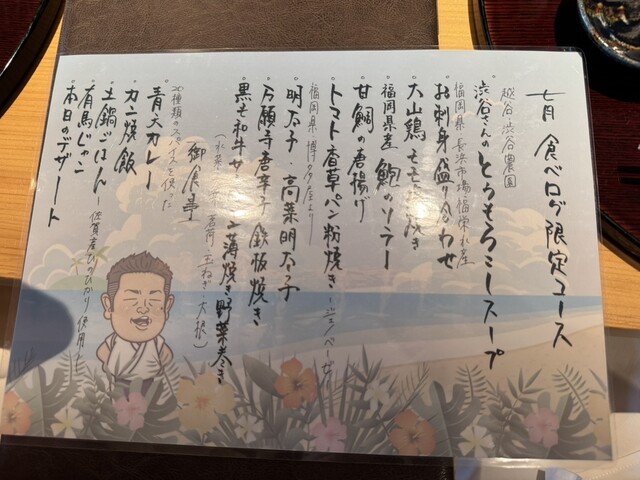 七月 食べログ限定コース
越谷 渋谷農園
渋谷さんのとうもろこしスープ
福岡県 長浜市場
お刺身盛り合わせ
大山鶏 焼き
福岡県産 鮑のソテー
甘鯛の唐揚げ
トマト香草パン粉焼き
福岡県 博多屋より
明太子・高菜明太子
万願寺唐辛子 鉄板焼き
黒毛和牛サ 薄焼き野菜巻き
玉ねぎ・大根）
御食事
20種類のスパイスを使った
青文カレー
カニ焼飯
土鍋ごはん 佐賀産ひのひかり使用
有馬じゃこ
本日のデザート